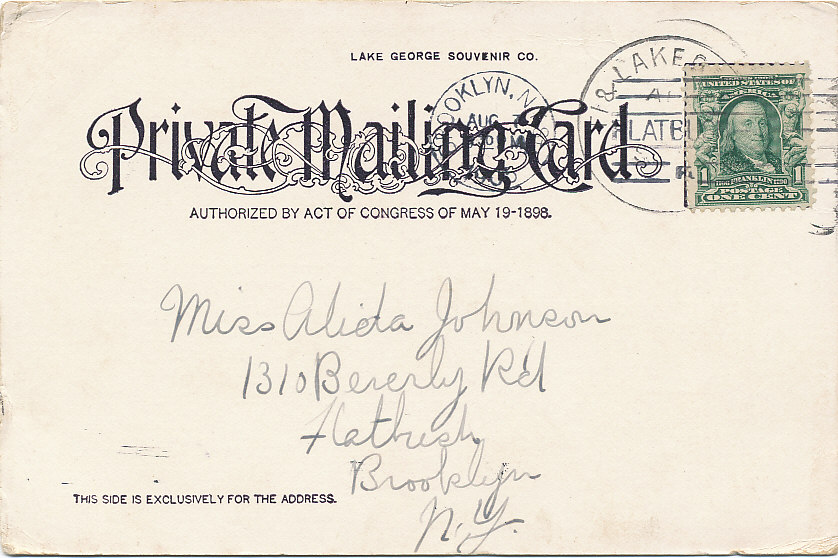 LAKE GEORGE SOUVENIR CO.
Private Mailing Card
AUTHORIZED BY ACT OF CONGRESS OF MAY 19-1898.
OOKLYN, N
AUG
LAKE G
FLATBU
UNITED STATES OF
AMERICA
FRANKLIN
POSTAGE
1 1
ONE CENT
Miss Alida Johnson
1310 Beverly Rd
Flatbush
Brooklyn
N.Y.
THIS SIDE IS EXCLUSIVELY FOR THE ADDRESS.